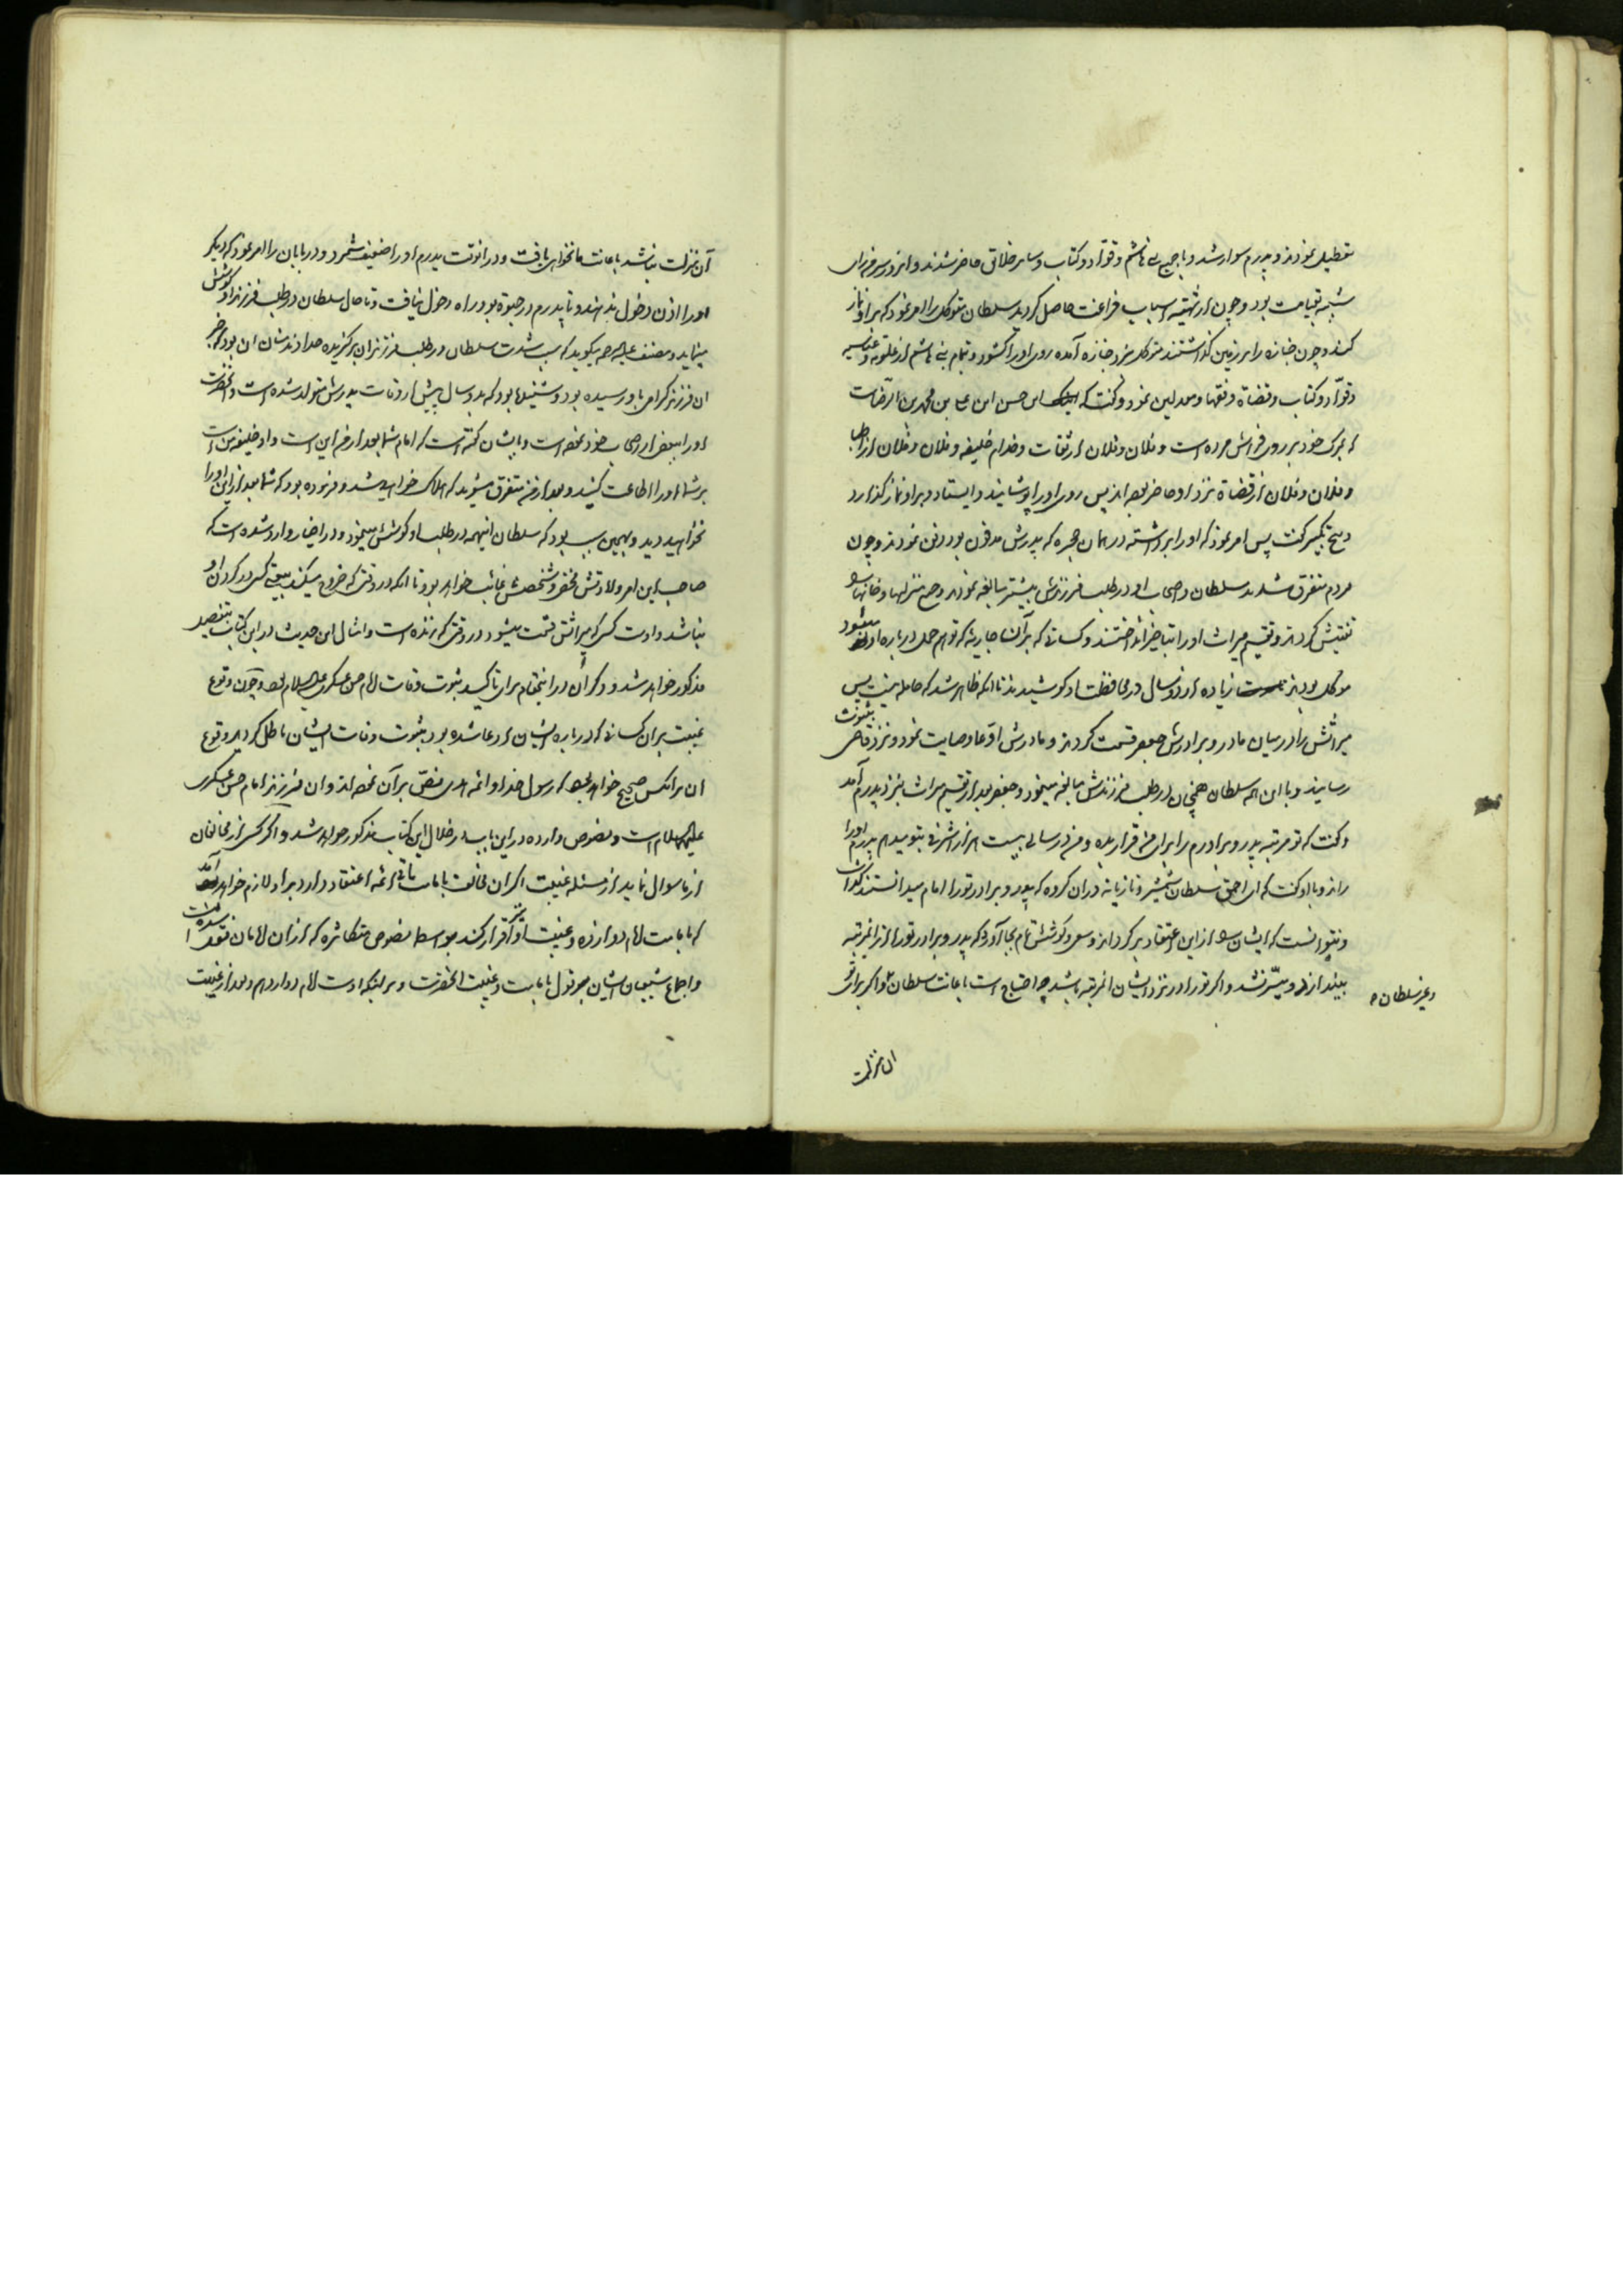 تعطیل نمودند و پدرم سوار شد و با جمیع بنی هاشم و قوّاد و کتّاب و سایر خلائق حاضر شدند و انروز سرمن رای
شبیه بقیامت بود و چون از تهیّه اسباب فراغت حاصل کردید سلطان متوکل را امر نمود که بر او نماز
کند و چون جنازه را بر زمین کذاشتند متوکل نزد جنازه آمده روی او را کشود و تمام بنی هاشم از علویه و عباسیه
و قوّاد و کتاب و قضاة و فقها و معدلین نمود و کفت که این حسن ابن علی بن محمد بن الرّضاست
که بمرک خود بر روی فراش مرده است و فلان و فلان از ثقات و خدام خلیفه و فلان و فلان از اطبا
و فلان و فلان از قضاة نزد او حاضر بوده اند پس روی او را پوشانید و ایستاد و بر او نماز کذارد
و پنج تکبیر کفت پس امر نمود که او را برداشته در همان حجره که پدرش مدفون بود دفن نمودند و چون
مردم متفرق شدند سلطان و اصحاب او در طلب فرزندش بیشتر مبالغه نمودند و جمیع منزلها و خانها را
تفتیش کردند و تقسیم میراث او را بتاخیر انداختند و کسانی که بر آن جاریه که توهم حمل درباره او میشود
موکل بودند زیاده از دو سال در محافظت او کوشیدند تا انکه ظاهر شد که حامله نیست پس
میراثش را در میان مادر و برادرش جعفر قسمت کردند و مادرش ادّعا وصایت نمود و نزد قاضی بثبوت
رسانید و با این همه سلطان همچنان در طلب فرزندش مبالغه مینمود و جعفر بعد از تقسیم میراث بنزد پدرم آمد
و کفت که تو مرتبه پدر و برادرم را برای من قرار بده و من در سالی بیست هزار اشرفی بتو میدهم پدرم او را
راند و با او کفت که ای احمق سلطان شمشیر و تازیانه در ان کروه که پدر و برادر تو را امام میدانستند کذاشت
و نتوانست که ایشان را از این اعتقاد بر کرداند و سعی و کوشش تمام بجا آورد که پدر و برادر تو را از ان مرتبه
بیندازد و میسّر نشد و اکر تو را در نزد ایشان انمرتبه باشد چه احتیاج است باعانت سلطان و اکر برای تو
و غیر سلطان
ان منزلت
آن منزلت نباشد باعانت ما نخواهی یافت و در انوقت پدرم او را ضعیف شمرد و دربانان را امر نمود که دیکر
او را اذن دخول ندهند و تا پدرم در حیوة بود راه دخول نیافت و تا حال سلطان در طلب فرزند او کوشش
مینماید و مصنف علیه الرحمه میکوید که سبب شدت سلطان در طلب فرزند ان برکزیده خداوند منان ان بود که خبر
ان فرزند کرامی باو رسیده بود و شنیده بود که بدو سال پیش از وفات پدرش متولد شده است و انحضرت
او را ببعض از اصحاب خود نموده است و بایشان کفته است که امام شما بعد از من این است و او خلیفه من است
بر شما او را اطاعت کنید و بعد از من متفرق مشوید که هلاک خواهید شد و فرموده بود که شما بعد از این او را
نخواهید دید و بهمین سبب بود که سلطان اینهمه در طلب او کوشش مینمود و در اخبار وارد شده است که
صاحب این امر ولادتش مخفی و شخصش غائب خواهد بود تا انکه در وقتی که خروج میکند بیعت کسی در کردن او
نباشد و اوست کسی که میراثش قسمت میشود در وقتی که زنده است و امثال این حدیث در این کتاب بتفصیل
مذکور خواهد شد و ذکر ان در اینمقام برای تاکید ثبوت وفات امام حسن عسکری علیه السلام بود و چون وقوع
غیبت بر ان کسانی که درباره ایشان ادعا شده بود بثبوت وفات ایشان باطل کردید وقوع
ان بر انکس صحیح خواهد بود که رسول خدا و ائمه هدی نصّ بر آن نموده اند و ان فرزند امام حسن عسکری
علیهما السلام است و نصوص وارده در این باب در خلال این کتاب مذکور خواهد شد و اکر کسی از مخالفان
از ما سوال نماید از مسئله غیبت اکر ان مخالف بامامت باقی ائمه اعتقاد دارد بر او لازم خواهد آمد
که بامامت امام دوازدهم و غیبت او نیز اقرار کند بواسطه نصوص متکاثره که از ان امامان نقل شده است
و اجماع شیعیان ایشان بر قول بامامت و غیبت انحضرت و بر اینکه اوست امام دوازدهم و بعد از غیبت